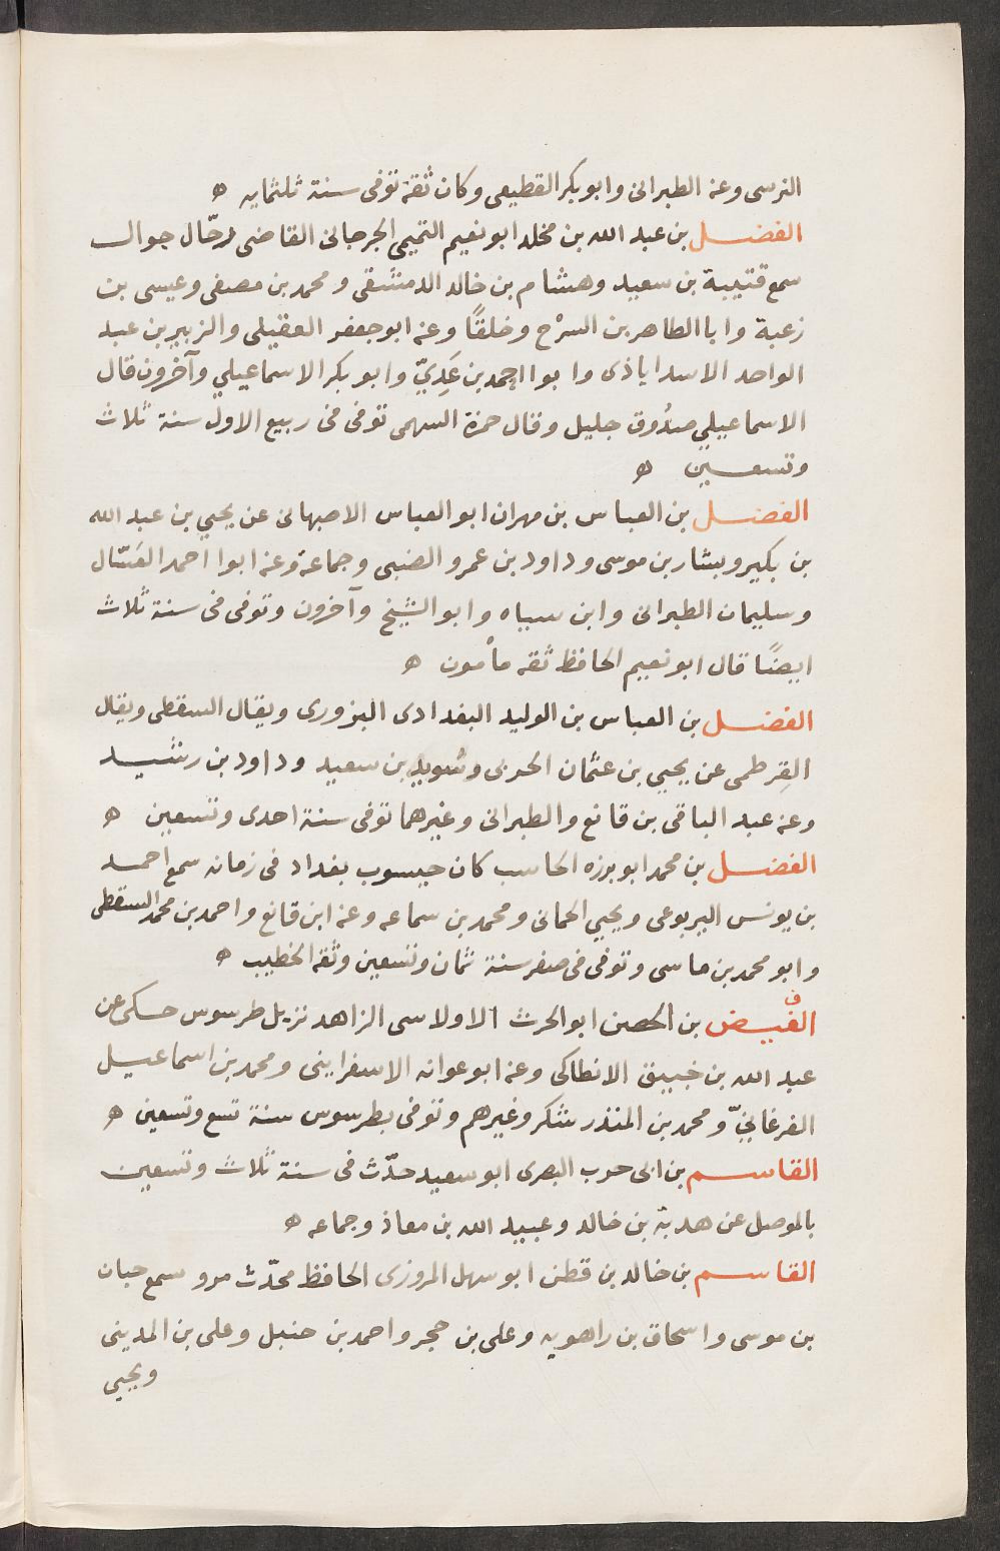 النرسى وعنه الطبرانى وابو بكر القطيعى وكان ثقة توفى سنة ثلثمايه ه
الفضل بن عبد الله بن مخلد ابو نعيم التميمى الجرجانى القاضى رحّال جوال
سمع قتيبة بن سعيد وهشام بن خالد الدمشقى ومحمد بن مصفى وعيسى بن
زعبة وابا الطاهر بن السرْح وخلقًا وعنه ابو جعفر العقيلى والزبير بن عبد
الواحد الاسداباذى وابو احمد بن عَدِيّ وابو بكر الاسماعيلي وآخرون قال
الاسماعيلي صدُوق جليل وقال حمزة السهمى توفى فى ربيع الاول سنة ثلاث
وتسعين ه
الفضل بن العباس بن مهران ابو العباس الاصبهانى عن يحيي بن عبد الله
بن بكير وبشار بن موسى وداود بن عمرو الضبى وجماعة وعنه ابوا احمد العَسّال
وسليمان الطبرانى وابن سياه وابو الشيخ وآخرون وتوفى فى سنة ثلاث
ايضًا قال ابو نعيم الحافظ ثقه مأمون ه
الفضل بن العباس بن الوليد البغدادى البزورى ويقال السقطى ويقال
القِرطمى عن يحيي بن عثمان الحربى وسُويد بن سعيد وداود بن رشيد
وعنه عبد الباقى بن قانع والطبرانى وغيرهما توفى سنة احدى وتسعين ه
الفضل بن محمد ابو بوزه الحاسب كان جيسوب بغداد فى زمانه سمع احمد
بن يونس اليربوعى ويحيي الحمانى ومحمد بن سماعه وعنه ابن قانع واحمد بن محمد السقطى
وابو محمد بن ماسى وتوفى فى صفر سنة ثمان وتسعين وثقه الخطيب ه
الفيض بن الحصين ابو الحرث الاولاسى الزاهد نزيل طرسوس حكى عن
عبد الله بن خبيق الانطاكى وعنه ابو عوانه الاسفراينى ومحمد بن اسماعيل
الفرغانيّ ومحمد بن المنذر شكر وغيرهم وتوفى بطرسوس سنة تسع وتسعين ه
القاسم بن ابى حرب البصرى ابو سعيد حدّث فى سنة ثلاث وتسعين
بالموصل عن هدبة بن خالد وعبيد الله بن معاذ وجماعه ه
القاسم بن خالد بن قطن ابو سهل المروزى الحافظ محدّث مرو سمع حبان
بن موسى واسحاق بن راهويه وعلى بن حجر واحمد بن حنبل وعلى بن المدينى
ويحيي